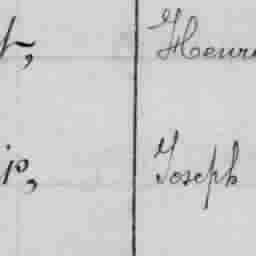 t, Henri
ip, Joseph